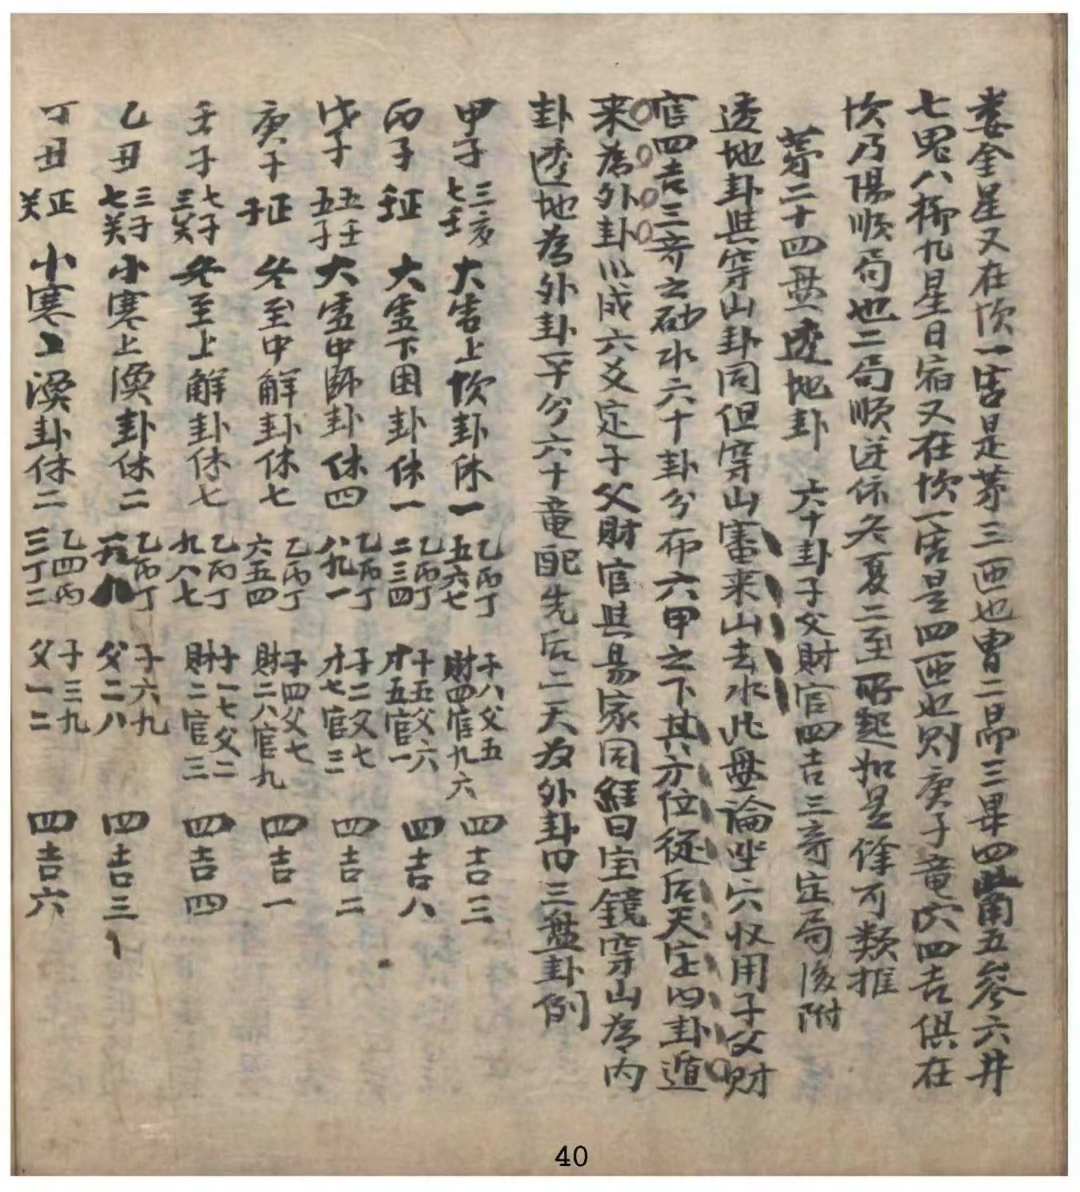 娄金星又在坎一宫是第三吉也胃二昴三畢四觜五參六井
七鬼八柳九星日宿又在坎一宫是四吉也则庚子竜穴四吉俱在
坎乃陽順局也二局順逆依冬夏二至所起如是馀可類推
第二十四盤透地卦 六十卦子父財官四吉三奇定局後附
透地卦與穿山卦同但穿山審来山去水此盤論坐穴収用子父财
官四吉三奇之砂水六十卦分布六甲之下其方位從后天定内卦遁
来為外卦以成六爻定子父財官與易家同經曰宝鏡穿山為内
卦透地為外卦平分六十竜配先后二天为外卦内三盤卦例
甲子 三亥七壬 大雪上坎卦休一 乙丙丁五六七 子八父五財四官九六 四吉三
丙子 正子 大雪下困卦休一 乙丙丁二三四 子五父六才五官一 四吉八
戊子 五壬五子 大雪中師卦休四 乙丙丁八九一 子二父七才七官三 四吉二
庚子 正子 冬至中解卦休七 乙丙丁六五四 子四父七財二八官九 四吉一
壬子 七子三癸 冬至上解卦休七 乙丙丁九八七 子一七父二財二官三 四吉四
乙丑 三子七癸 小寒上渙卦休二 乙丙丁 子六九父二八 四吉三
丁丑 正癸 小寒上渙卦休二 乙四丙三丁二 子三九父一二 四吉六
40